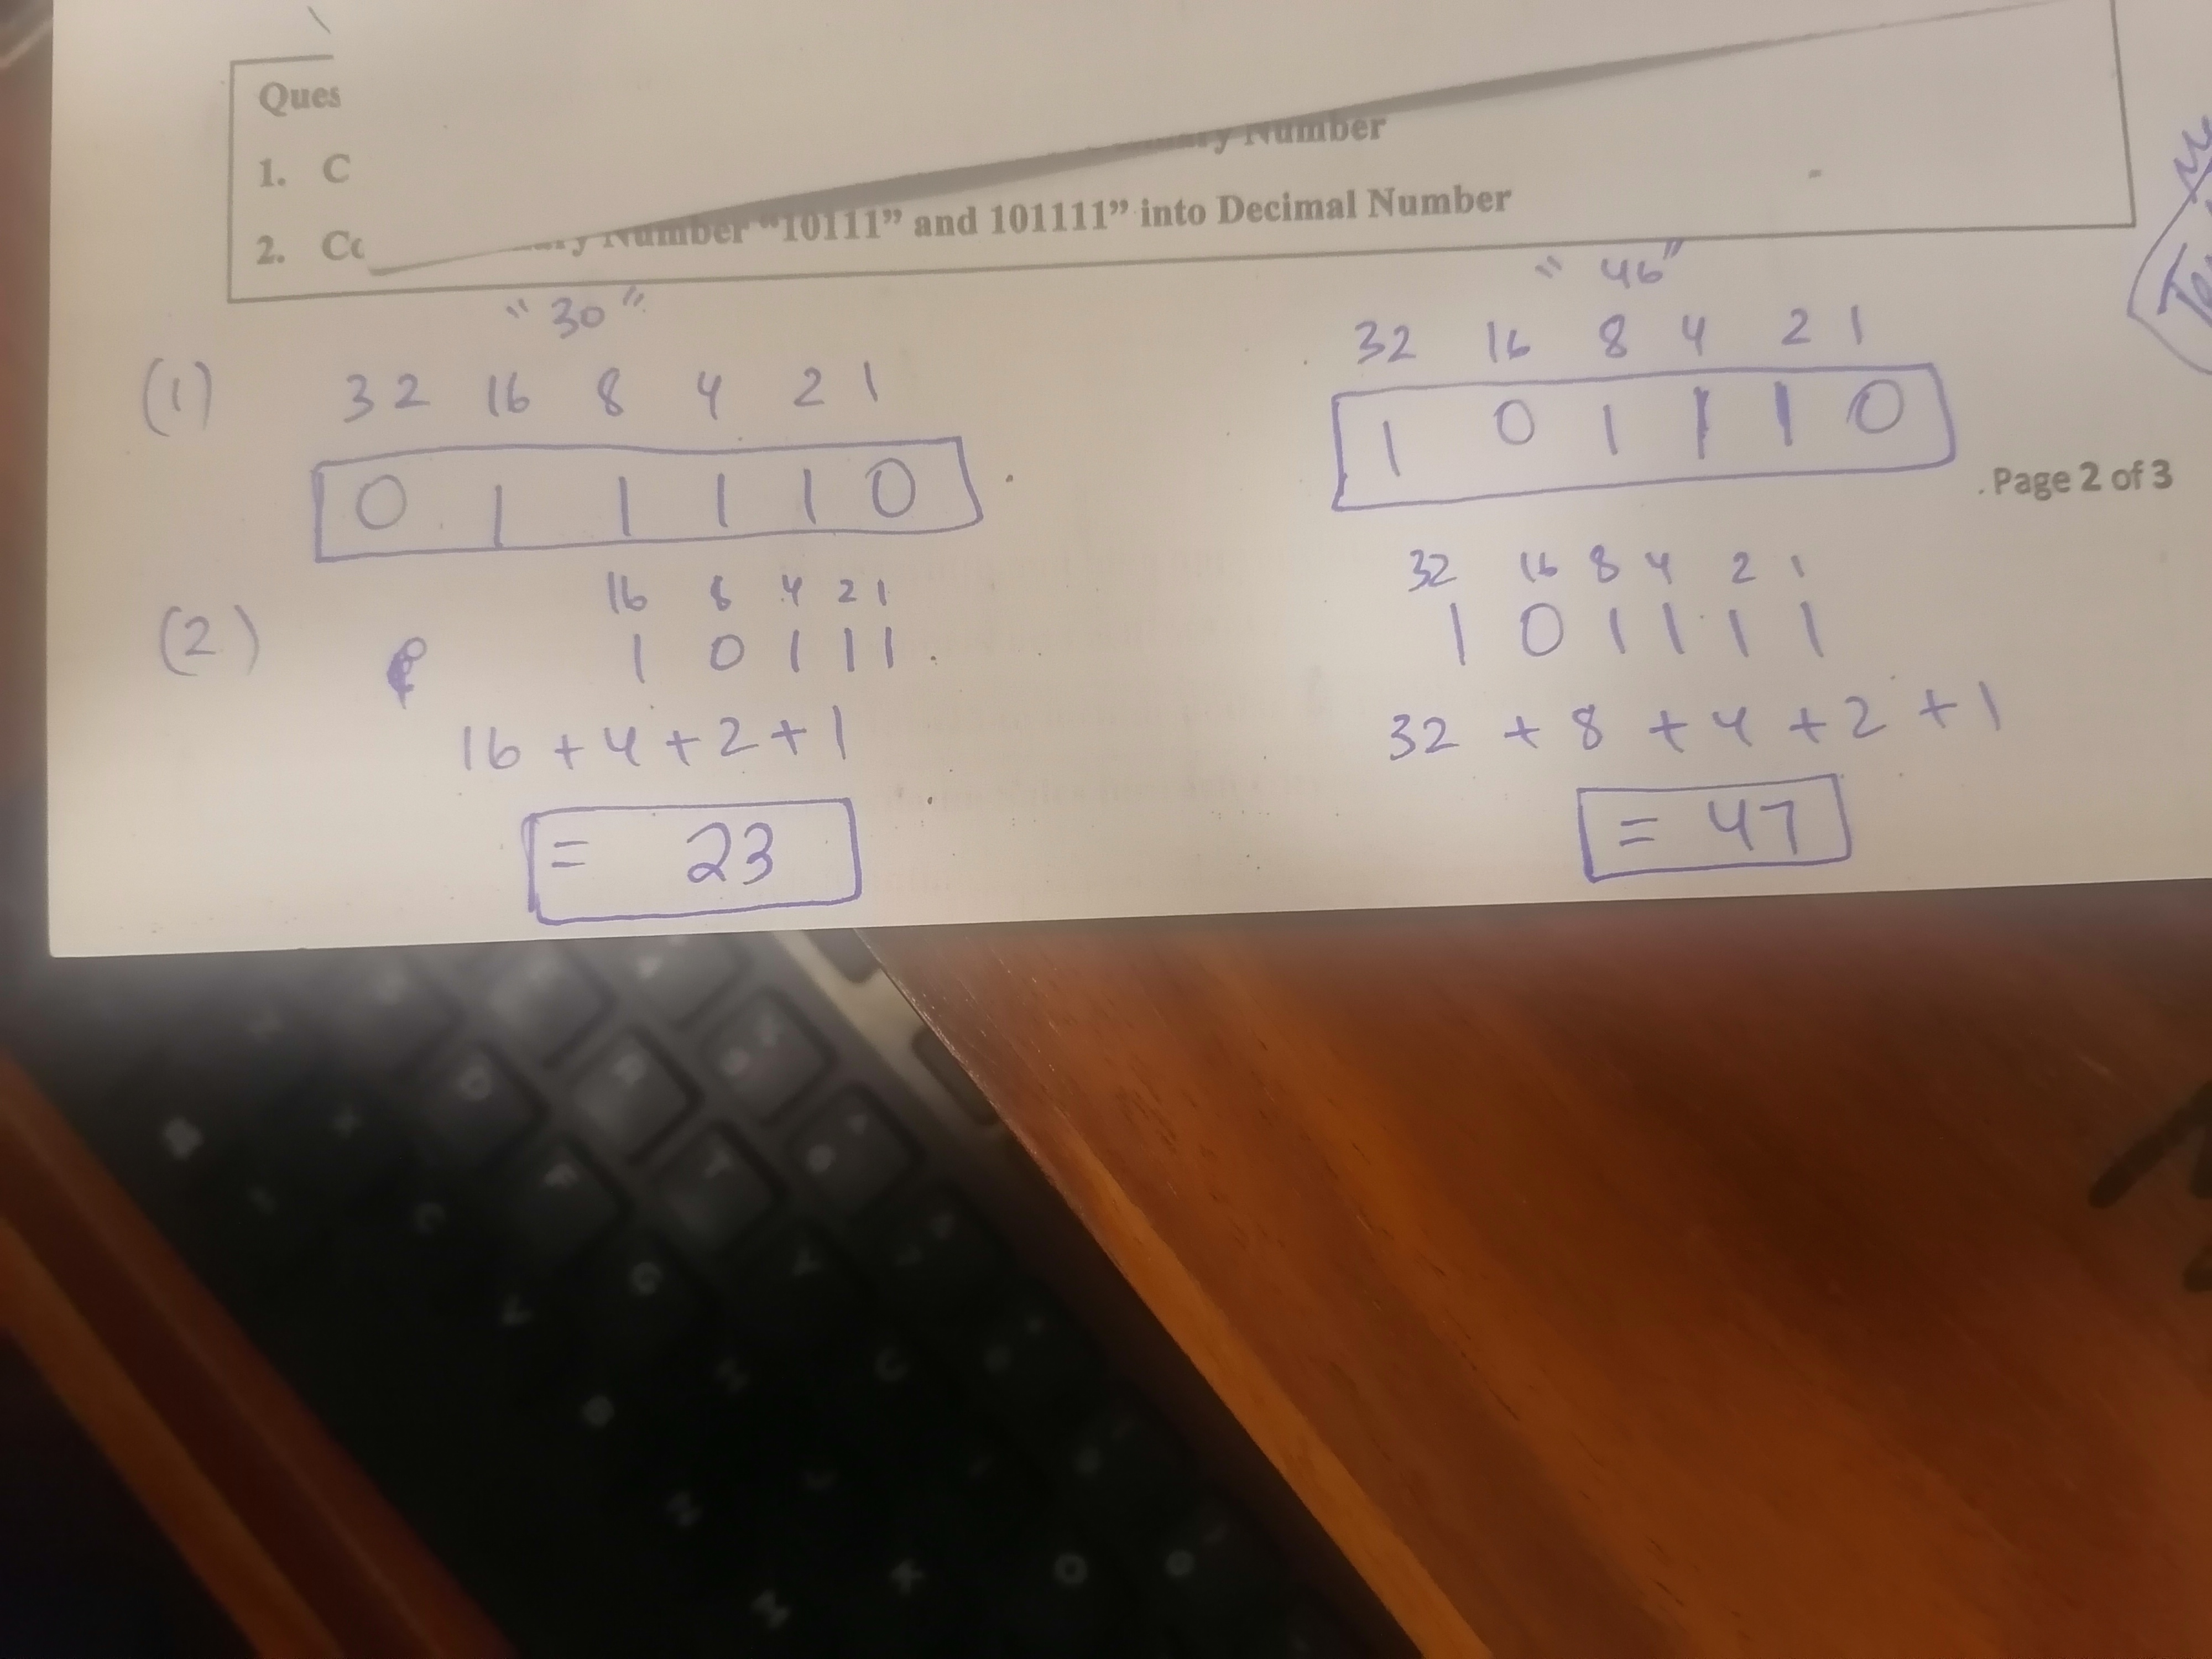 Ques
1. C Number
2. Number "10111" and 101111" into Decimal Number
"30"
"46"
(1) 32 16 8 4 2 1
0 1 1 1 1 0
32 16 8 4 2 1
1 0 1 1 1 0
. Page 2 of 3
(2) 16 8 4 2 1
1 0 1 1 1
16 + 4 + 2 + 1
= 23
32 16 8 4 2 1
1 0 1 1 1 1
32 + 8 + 4 + 2 + 1
= 47